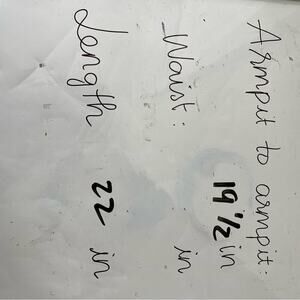 Armpit to armpit:
19 1/2 in
Waist: in
Length 22 in